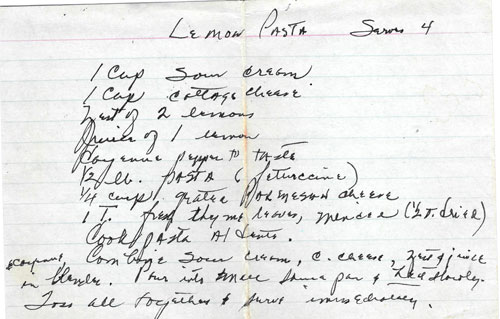 Lemon Pasta Serves 4
1 Cup Sour cream
1 Cup cottage cheese
Zest of 2 lemons
Juice of 1 lemon
Cayenne pepper to taste
1/2 lb. pasta (fettuccine)
1/4 cup grated Parmesan cheese
1 T. fresh thyme leaves, minced (1/2 t. dried)
Cook pasta Al dente.
Combine sour cream, c. cheese, zest & juice
& cayenne, in blender. Pour into small sauce pan & heat slowly.
Toss all together & serve immediately.